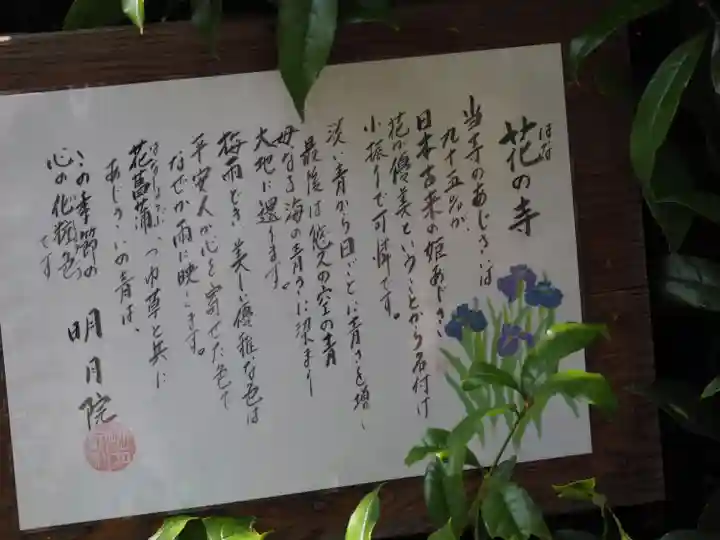 花の寺
はな
当寺のあじさいは
九十五%が、
日本古来の姫あじさい
花が優美ということから名付け
小振りで可憐です。
淡い青から日ごとに青さを増し
最後は悠久の空の青
母なる海の青さに染まり
大地に還ります。
梅雨どき、美しい優雅な色は
平安人が心を寄せた色で
なぜか雨に映えます。
花菖蒲、つゆ草と共に
あじさいの青は、
この季節の
心の化粧色です
明月院